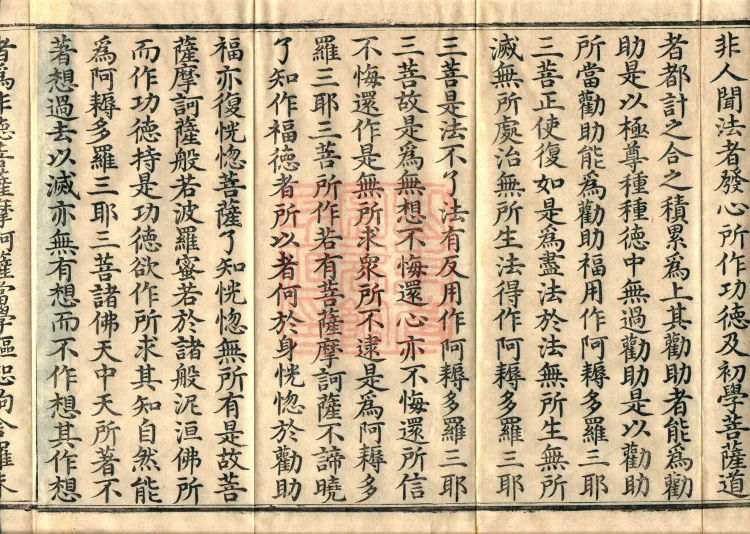 非人聞法者發心所作功德及初學菩薩道
者都計之合之積累為上其勸助者能為勸
助是以極尊種種德中無過勸助是以勸助
所當勸助能為勸助福用作阿耨多羅三耶
三菩正使復如是為盡法於法無所生無所
滅無所處治無所生法得作阿耨多羅三耶
三菩是法不了法有反用作阿耨多羅三耶
三菩故是為無想不悔還心亦不悔還所信
不悔還作是無所求衆所不逮是為阿耨多
羅三耶三菩所作若有菩薩摩訶薩不諦曉
了知作福德者所以者何於身恍惚於勸助
福亦復恍惚菩薩了知恍惚無所有是故菩
薩摩訶薩般若波羅蜜若於諸般泥洹佛所
而作功德持是功德欲作所求其知自然能
為阿耨多羅三耶三菩諸佛天中天所著不
著想過去以滅亦無有想而不作想其作想
者為非德菩薩摩訶薩當學漚惒拘舍羅未